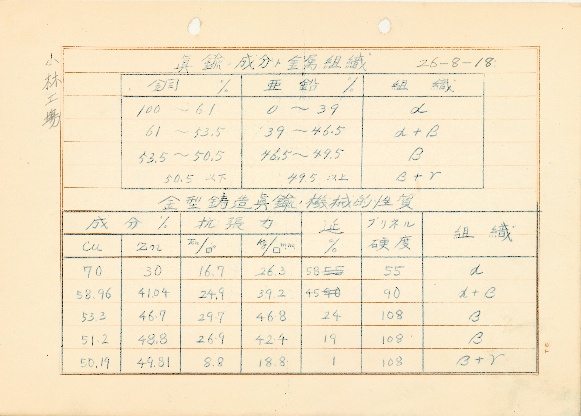 小林工場
眞鍮ノ成分ト金属組織 26-8-18
銅 % 亜鉛 % 組織
100~61 0~39 α
61~53.5 39~46.5 α+β
53.5~50.5 46.5~49.5 β
50.5以下 49.5以上 β+γ
金型鋳造眞鍮ノ機械的性質
成分% 抗張力 延% ブリネル硬度 組織
Cu Zn Tn/□" Kg/□mm
70 30 16.7 26.3 58 55 55 α
58.96 41.04 24.9 39.2 45 40 90 α+β
53.3 46.7 29.7 46.8 24 108 β
51.2 48.8 26.9 42.4 19 108 β
50.19 49.81 8.8 18.8 1 108 β+γ